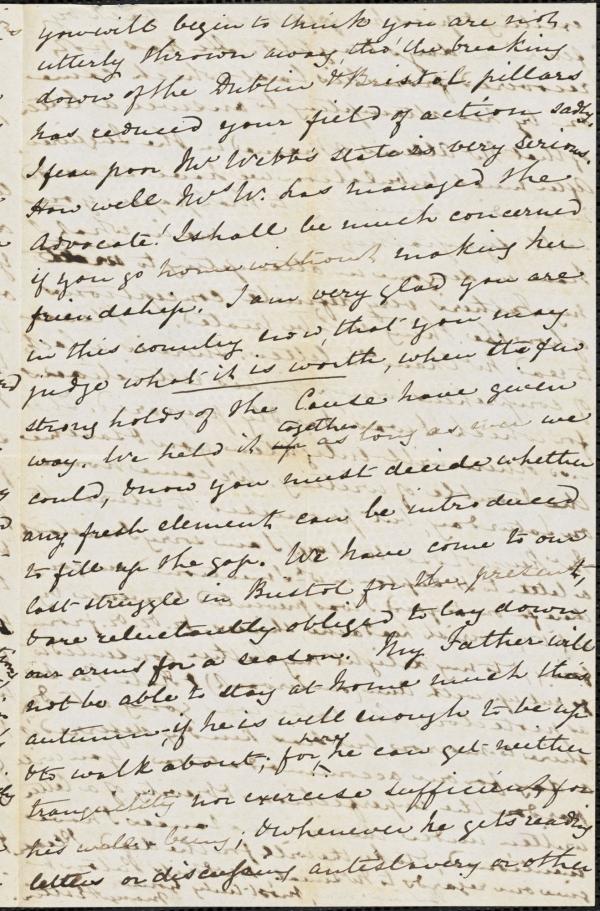 you will begin to think you are not
utterly thrown away, tho' the breaking
down of the Dublin & Bristol pillars
has reduced your field of action sadly.
I fear poor Mr Webb's state is very serious.
How well Mrs W. has managed the
Advocate! I shall be much concerned
if you go home without making her
friendship. I am very glad you are
in this country now, that you may
judge what it is worth, when the few
strong holds of the Cause have given
way. We held it together as long as ever we
could, & now you must decide whether
any fresh element can be introduced
to fill up the gap. We have come to our
last struggle in Bristol for the present,
& are reluctantly obliged to lay down
our arms for a season. My Father will
not be able to stay at home much this
autumn, if he is well enough to be up
& to walk about; for here he can get neither
tranquility nor exercise sufficient for
his well-being; & whenever he gets reading
letters or discussing antislavery or other